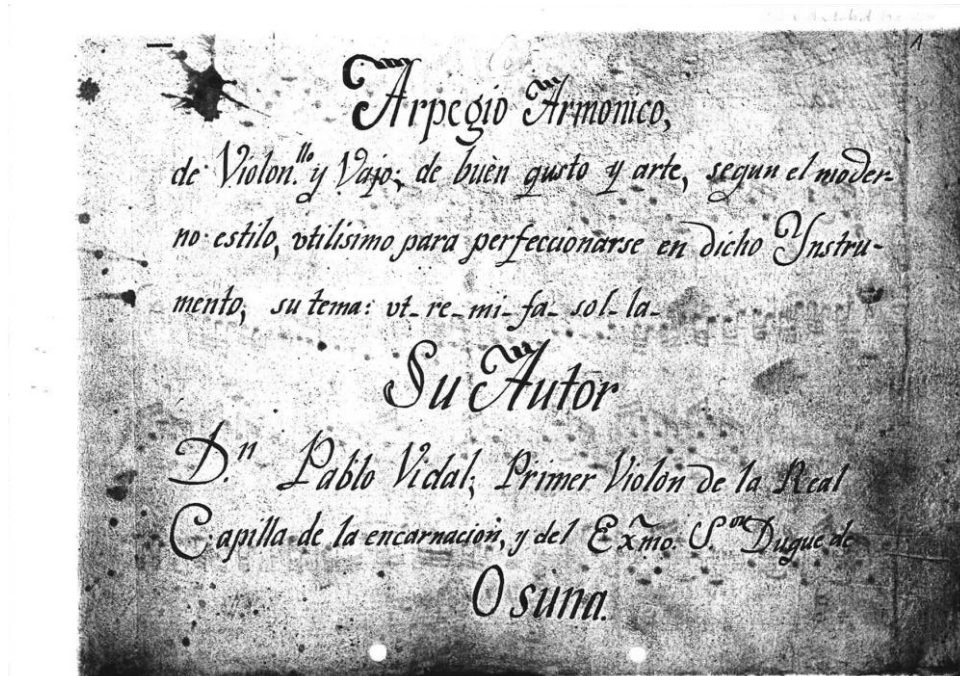 1
Arpegio Armonico,
de Violon.llo y Vajo; de buen gusto y arte, segun el moder-
no estilo, vtilisimo para perfeccionarse en dicho Ynstru-
mento, su tema: vt- re- mi- fa- sol- la-
Su Autor
D.n Pablo Vidal; Primer Violon de la Real
Capilla de la encarnacion, y del Exmo. S.or Duque de
Osuna.